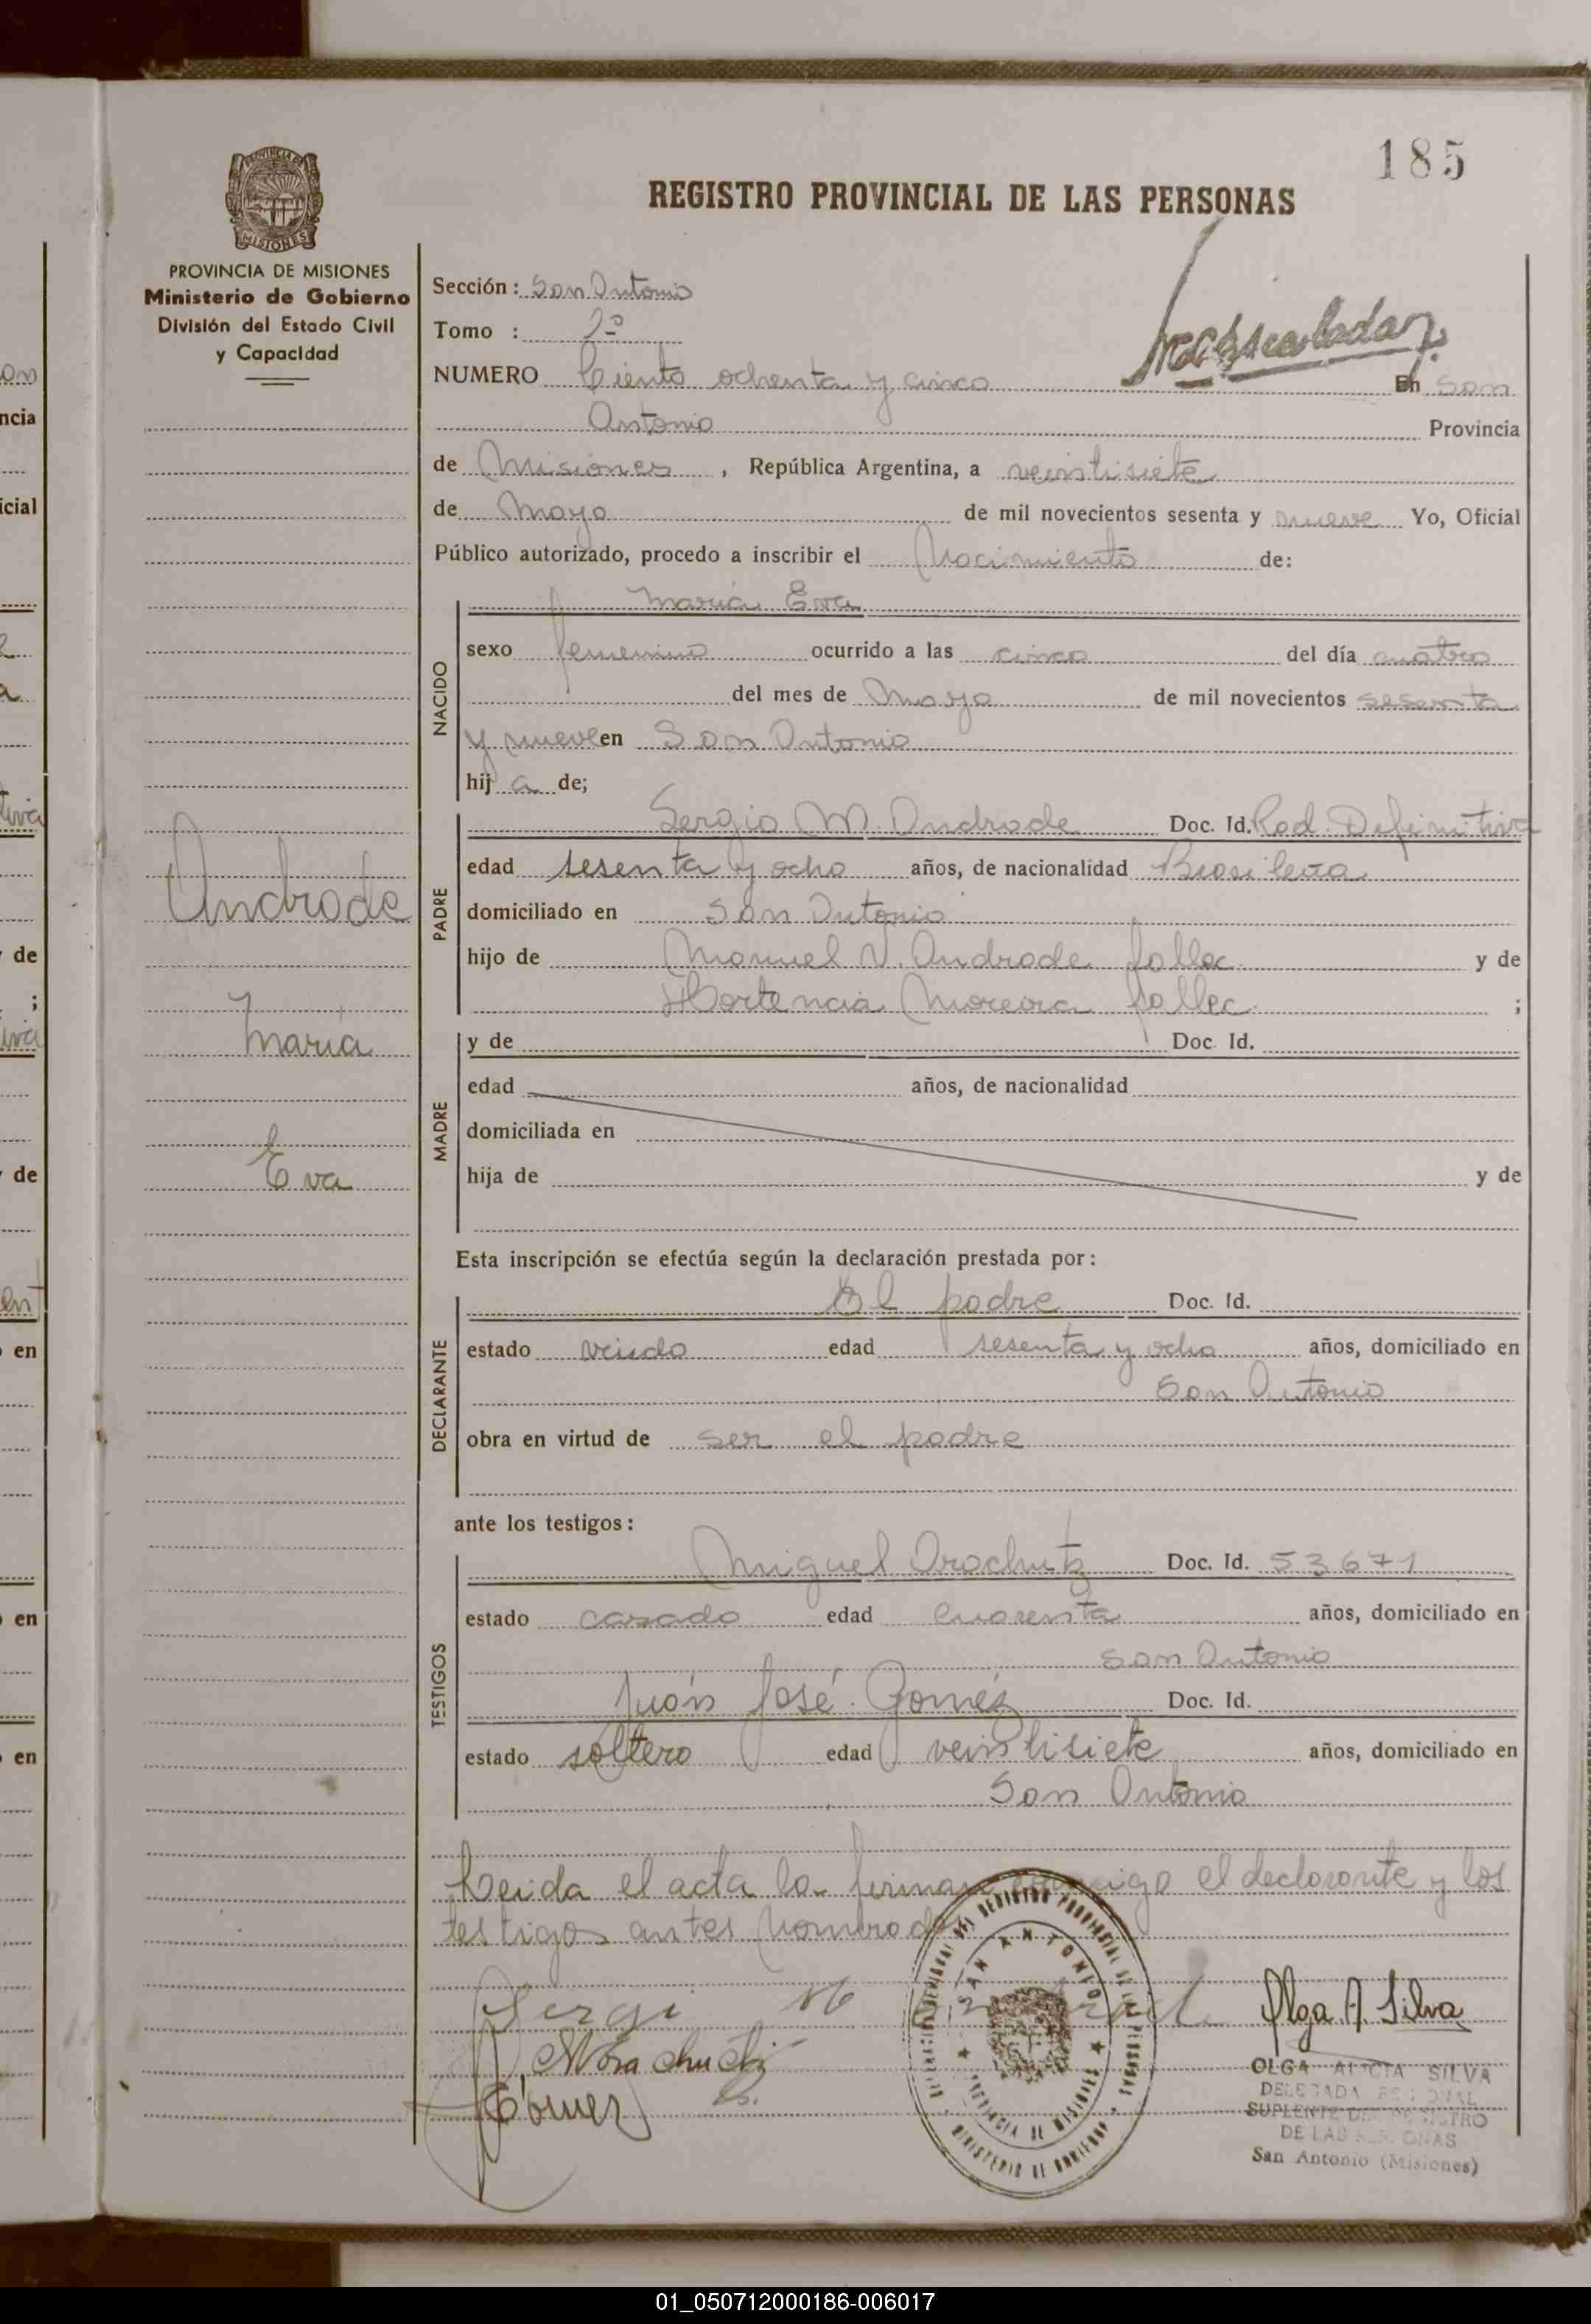 185
REGISTRO PROVINCIAL DE LAS PERSONAS
PROVINCIA DE MISIONES
Ministerio de Gobierno
División del Estado Civil
y Capacidad
Sección: San Antonio
Tomo :
NUMERO Ciento ochenta y cinco En San
Antonio Provincia
de Misiones, República Argentina, a veintisiete
de Mayo de mil novecientos sesenta y nueve Yo, Oficial
Público autorizado, procedo a inscribir el Nacimiento de:
María Eva
NACIDO
sexo femenino ocurrido a las cinco del día cuatro
del mes de Mayo de mil novecientos sesenta
y nueve en San Antonio
hij a de;
PADRE
Sergio M. Andrade Doc. Id. Rad. Definitiva
edad sesenta y ocho años, de nacionalidad Brasileña
domiciliado en San Antonio
hijo de Manuel V. Andrade fallec. y de
Hortencia Moreira fallec. ;
Andrade
María
Eva
MADRE
y de Doc. Id.
edad años, de nacionalidad
domiciliada en
hija de y de
Esta inscripción se efectúa según la declaración prestada por:
DECLARANTE
El padre Doc. Id.
estado viudo edad sesenta y ocho años, domiciliado en
San Antonio
obra en virtud de ser el padre
ante los testigos:
TESTIGOS
Miguel Doc. Id. 53671
estado casado edad cuarenta años, domiciliado en
San Antonio
Juán José Goméz Doc. Id.
estado soltero edad veintisiete años, domiciliado en
San Antonio
Leida el acta la firman conmigo el declarante y los
testigos antes nombrados
Sergi M
Gomez
Olga A. Silva
SAN ANTONIO
PROVINCIA DE MISIONES
MINISTERIO DE GOBIERNO
OLGA ALICIA SILVA
DELEGADA REGIONAL
SUPLENTE DEL REGISTRO
DE LAS PERSONAS
San Antonio (Misiones)
01_050712000186-006017